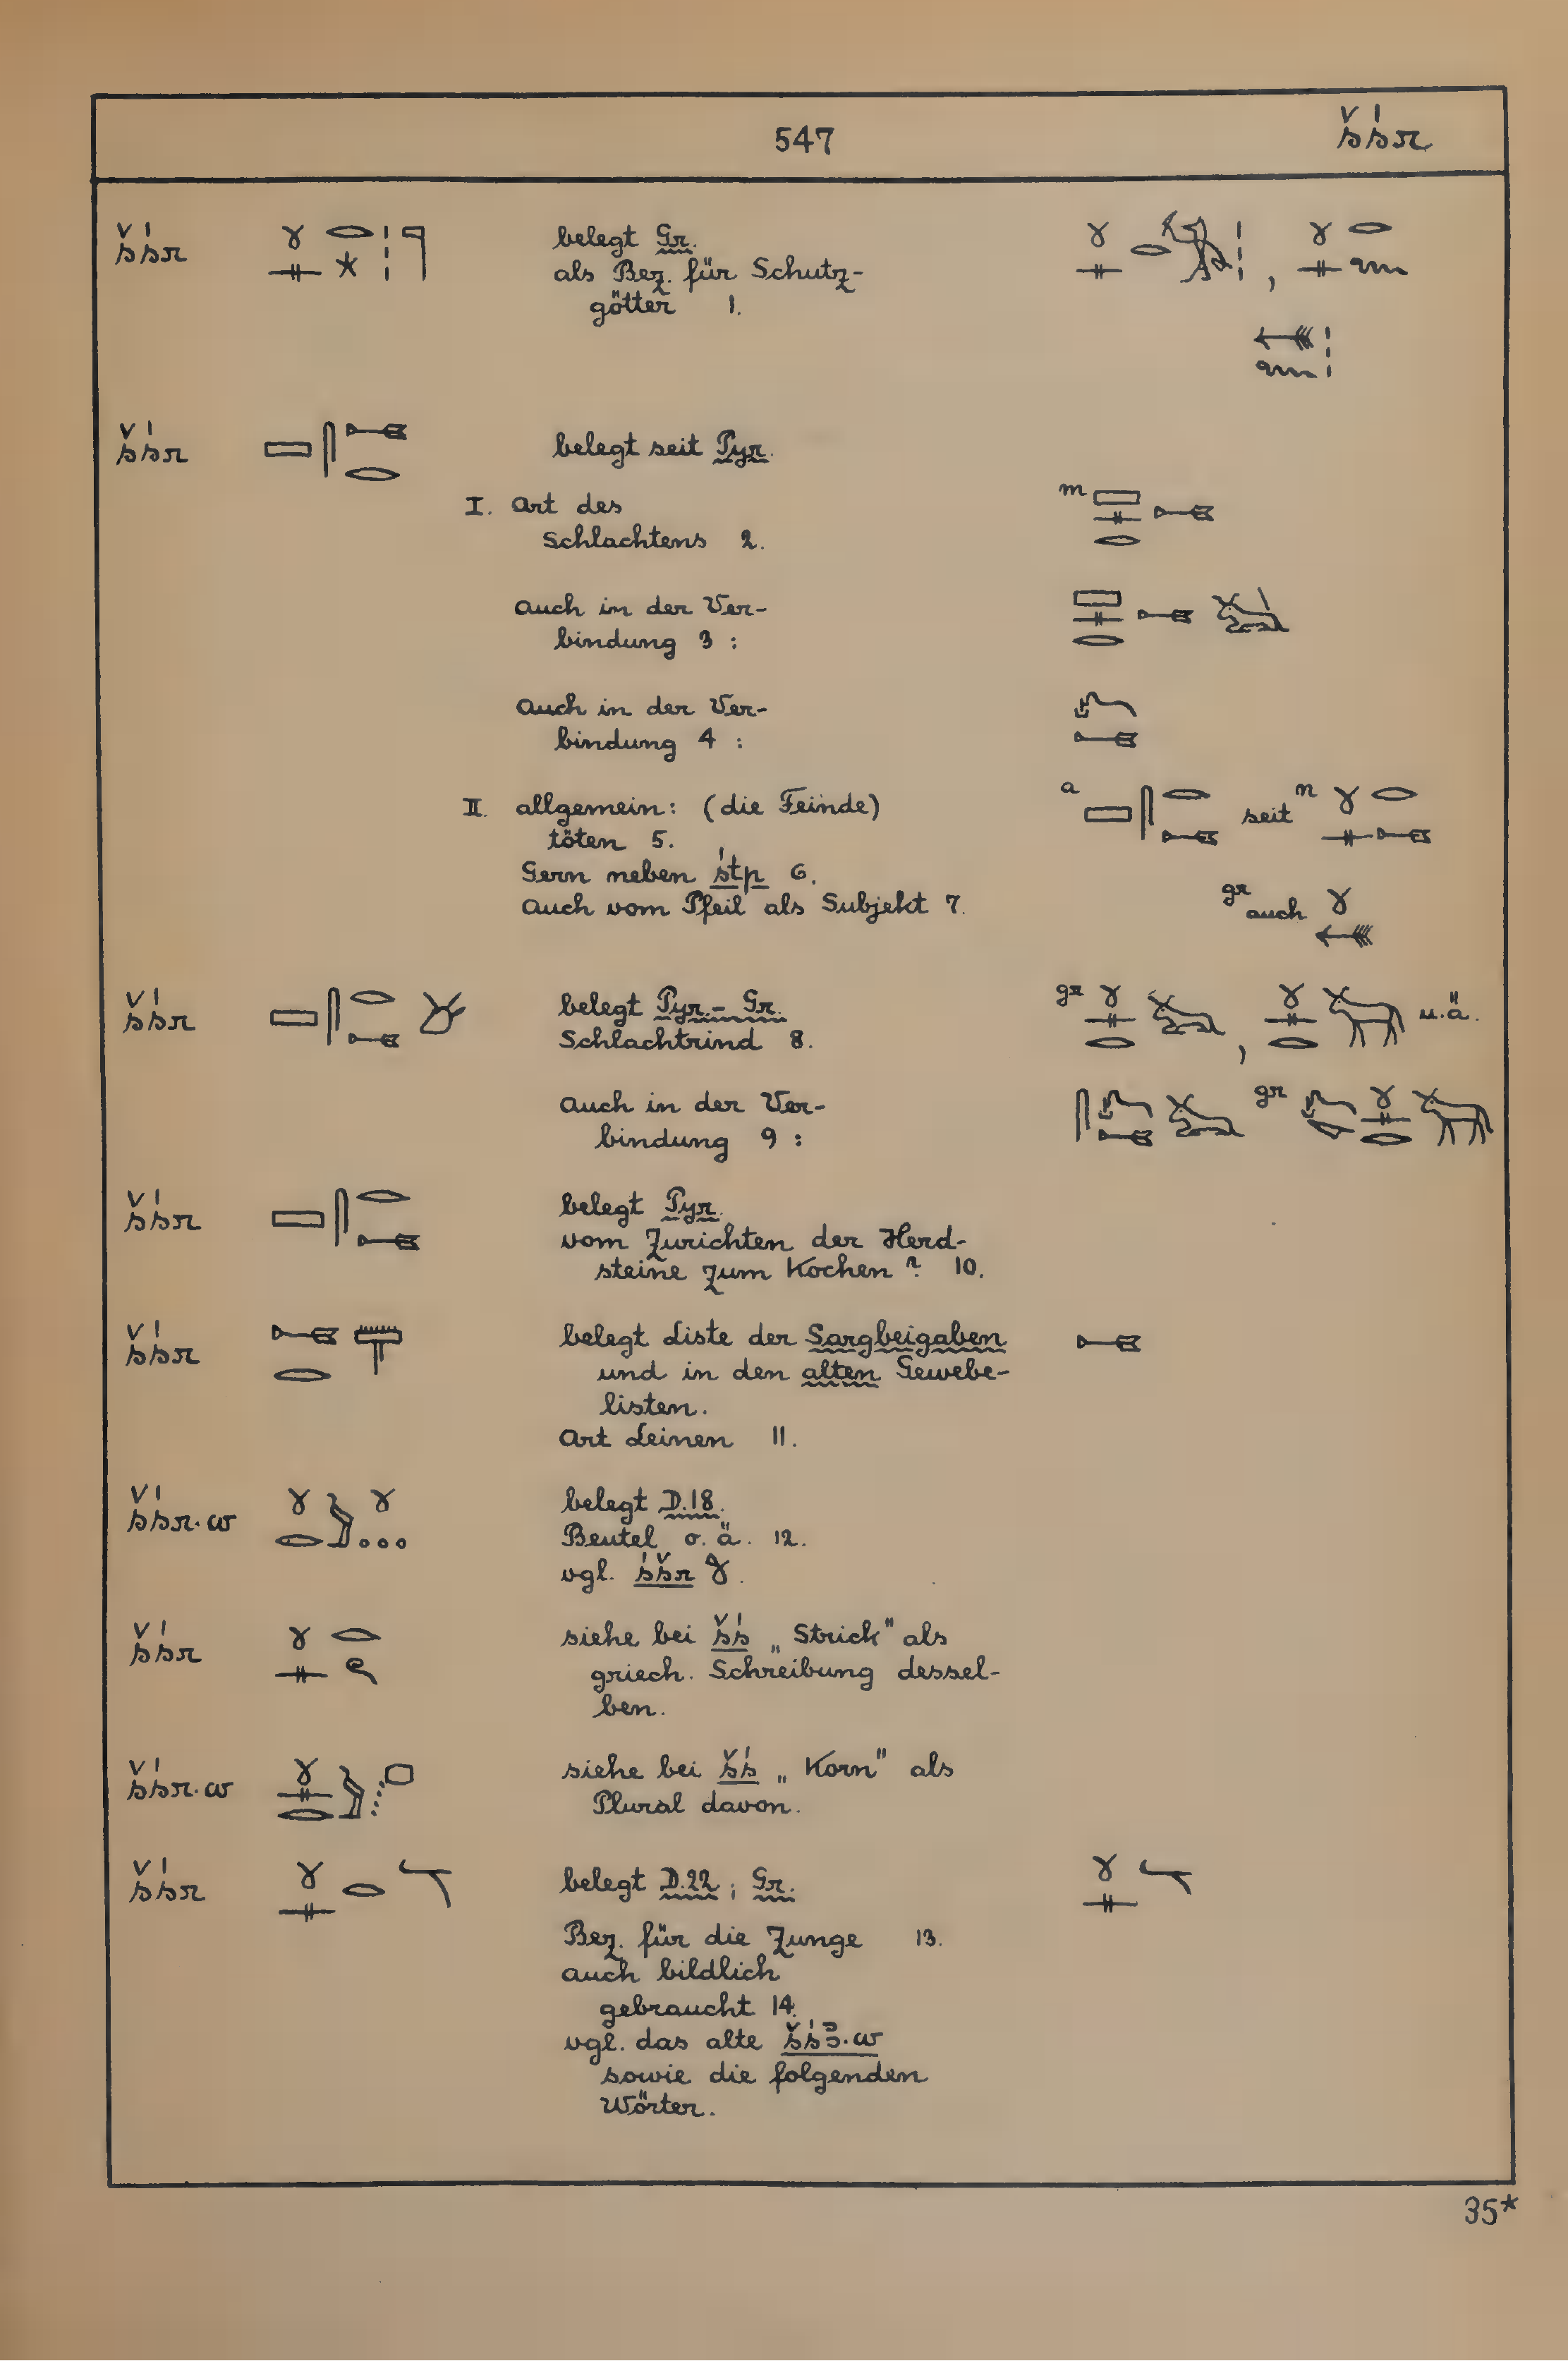 547 šśr
šśr belegt Gr.
als Bez. für Schutz-
götter 1.
šśr belegt seit Pyr.
I. Art des
Schlachtens 2. m
auch in der Ver-
bindung 3 :
auch in der Ver-
bindung 4 :
II. allgemein: (die Feinde) a seit n
töten 5.
Gern neben śtp 6.
Auch vom Pfeil als Subjekt 7. gr auch
šśr belegt Pyr.- Gr. gr u.ä.
Schlachtrind 8.
auch in der Ver- gr
bindung 9 :
šśr belegt Pyr.
vom Zurichten der Herd-
steine zum Kochen ? 10.
šśr belegt Liste der Sargbeigaben
und in den alten Gewebe-
listen.
Art Leinen 11.
šśr.w belegt D.18.
Beutel o.ä. 12.
vgl. śšr .
šśr siehe bei šś „Strick" als
griech. Schreibung dessel-
ben.
šśr.w siehe bei šś „Korn" als
Plural davon.
šśr belegt D.22 ; Gr.
Bez. für die Zunge 13.
auch bildlich
gebraucht 14.
vgl. das alte šśꜣ.w
sowie die folgenden
Wörter.
35*